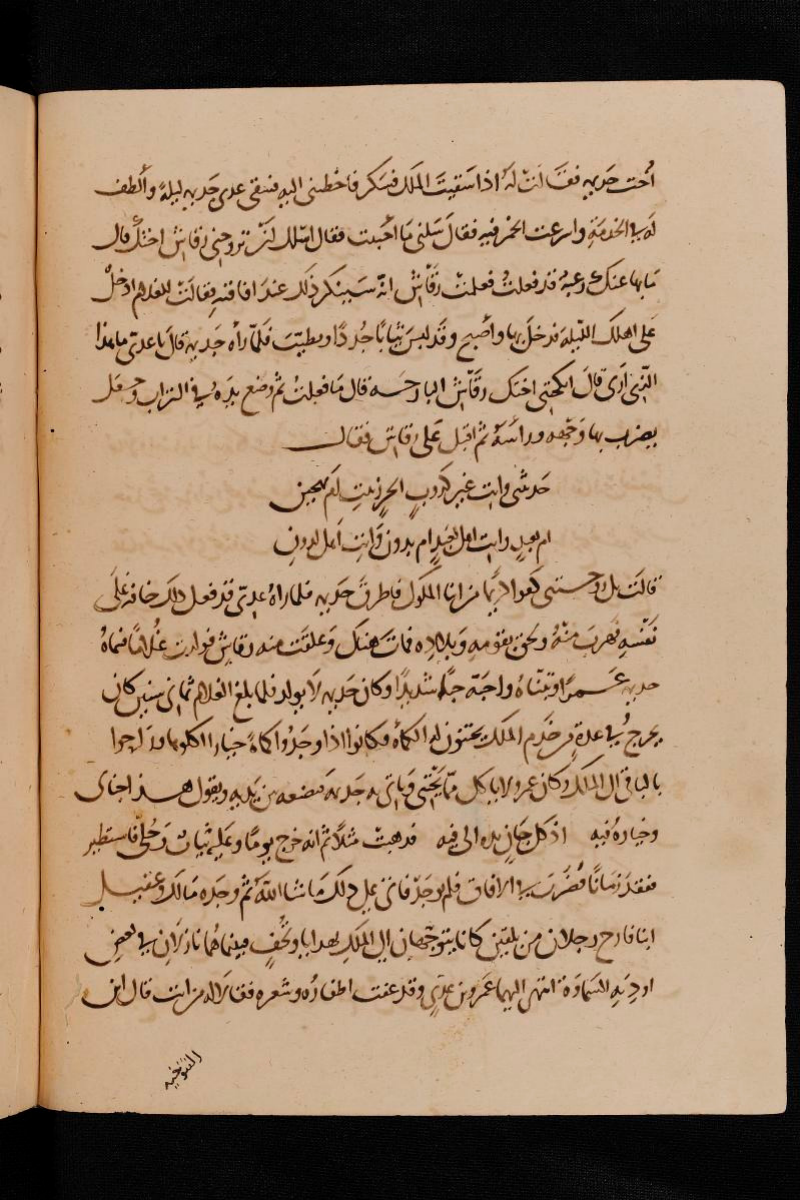 أخت جذيمه فقالت له اذا سقيت الملك فسكر فاخطبنى اليه فسقى عدى جذيمه ليلة وألطف
له في الخدمة واسرعت الخمر فيه فقال سلنى ما أحببت فقال اسلك ان تزوجنى رقاش اختك قال
ما بها عنك رغبة قد فعلت فعلمت رقاش انه سينكر ذلك عند افاقته فقالت للغلام ادخل
على اهلك الليلة فدخل بها وأصبح وقد لبس ثيابا جددا وتطيب فلما رأه جذيمة قال يا عدى ما هذا
الذى أرى قال انكحتنى اختك رقاش البارحه قال ما فعلت ثم وضع يده في التراب وجعل
يضرب بها وجهه وراسه ثم اقبل على رقاش فقال
حدثنى وانت غير كذوب ابحر زنيت ام بهجين
ام بعبد وانت اهل لعبد ام بدون وانت اهل لدون
قالت بل زوجتنى كفوا كريما من ابنا الملوك فاطرق جذيمه فلما راه عدى قد فعل ذلك خافه على
نفسه فهرب منه ولحق بقومه وبلاده فمات هنك وعلقت منه رقاش فولدت غلاما فسماه
جذيمه عمرا وتبناه واحبه حبا شديدا وكان جذيمه لا يولد فلما بلغ الغلام ثمانى سنين كان
يخرج في عدة من خدم الملك يجتنون له الكمأه فكانوا اذا وجدوا كماة خيارا اكلوها وراحوا
بالباقى الى الملك وكان عمرو لا ياكل مما يجنى وياتى به جذيمة فيضعه بين يديه ويقول هذا جناى
وخياره فيه اذ كل جان يده الى فيه فذهبت مثلا ثم انه خرج يوما وعليه ثياب وحلى فاستطير
ففقد زمانا فضرب في الافاق فلم يوجد فاتى على ذلك ما شا الله ثم وجده مالك وعقيل
ابنا فارح رجلان من بلقين كانا يتوجهان الى الملك بهدايا وتحف فبينما هما نازلان في بعض
اوديه السماوة انتهى اليهما عمرو بن عدى وقد عفت اظفاره وشعره فقالا له من انت قال ابن
التنوخيه